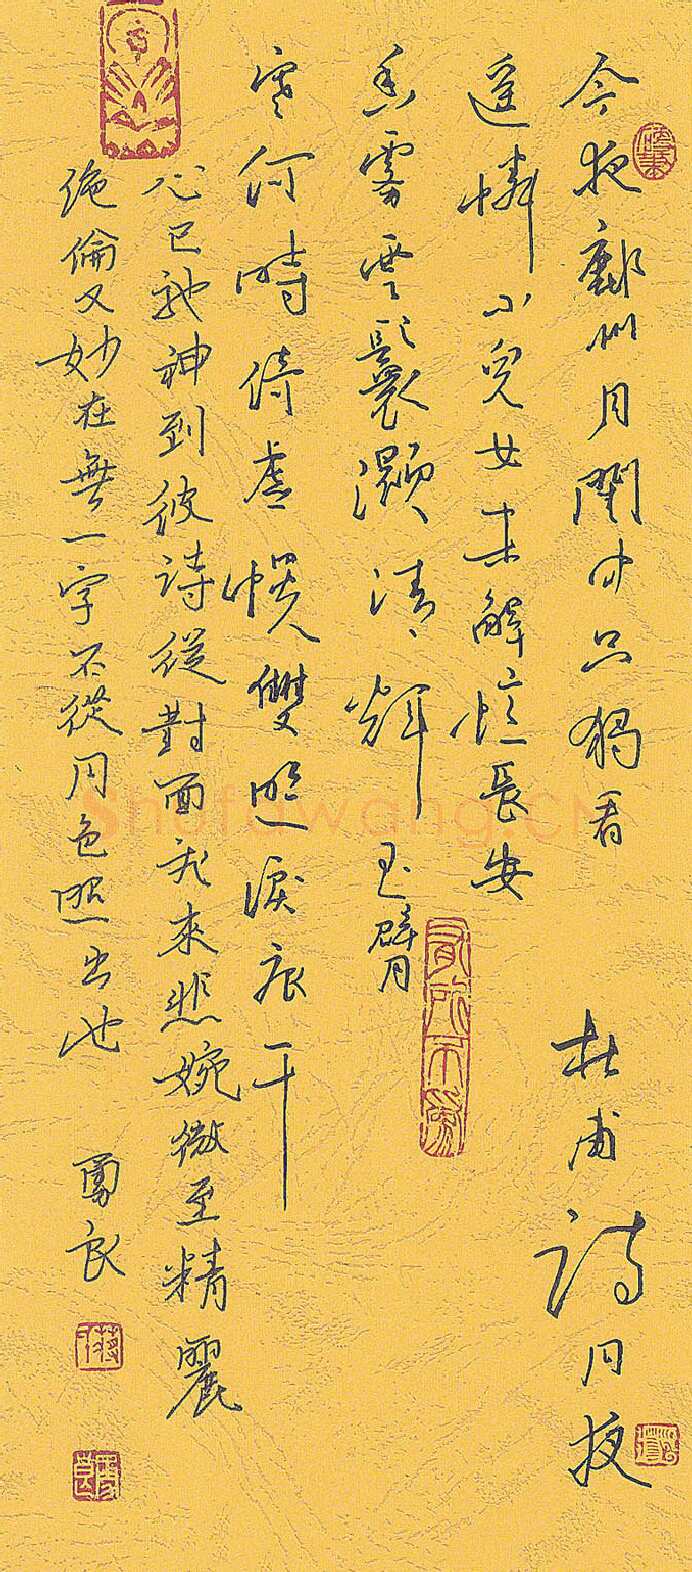 今夜鄜州月閨中只獨看
杜甫詩月夜
遥憐小兒女未解憶長安
香霧雲鬟濕清輝玉臂
寒何時倚虛幌雙照淚痕干
心已馳神到彼詩從對面飛來悲婉微至精麗
絶倫又妙在無一字不從月色照出也
勇良
有所不為
Shufawang.CN